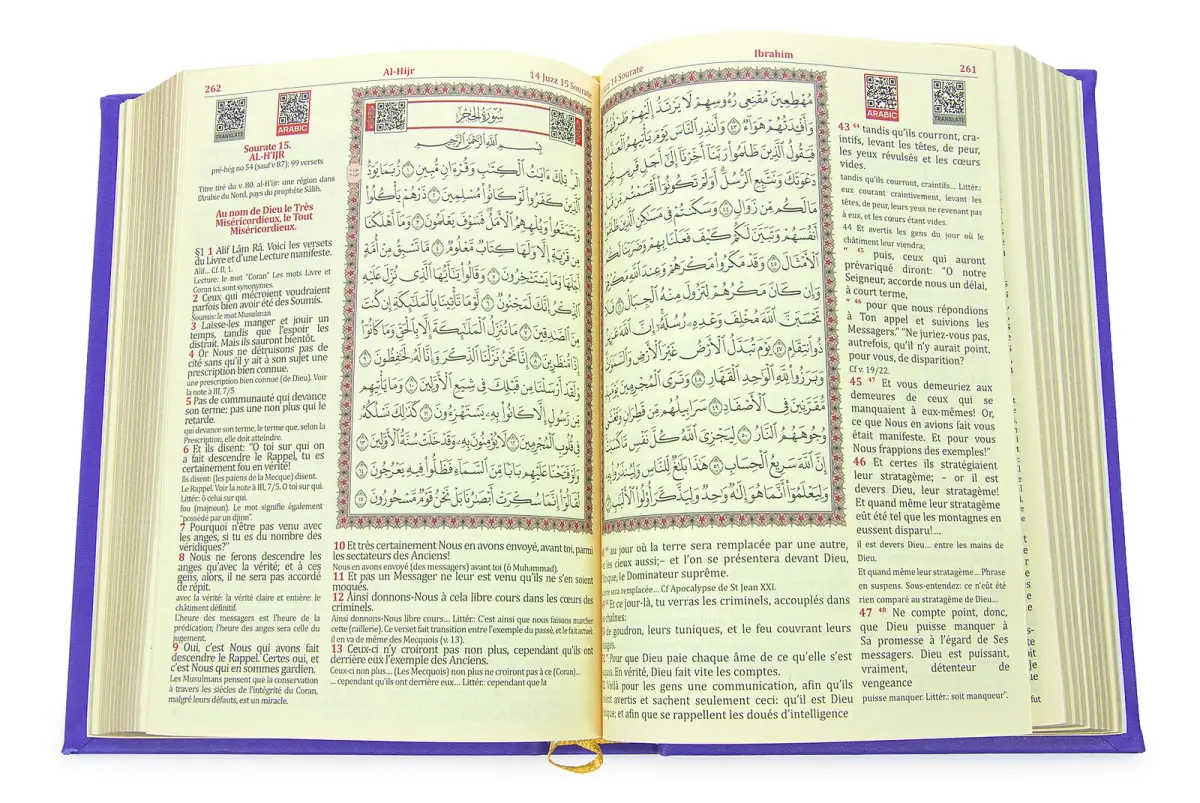 Ibrahim
261
14 Sourate
مُهْطِعِينَ مُقْنِعِى رُءُوسِهِمْ لَا يَرْتَدُّ إِلَيْهِمْ طَرْفُهُمْ
وَأَفْـِٔدَتُهُمْ هَوَآءٌ ٤٣ وَأَنذِرِ ٱلنَّاسَ يَوْمَ يَأْتِيهِمُ
فَيَقُولُ ٱلَّذِينَ ظَلَمُوا۟ رَبَّنَآ أَخِّرْنَآ إِلَىٰٓ أَجَلٍ قَرِيبٍ
دَعْوَتَكَ وَنَتَّبِعِ ٱلرُّسُلَ أَوَلَمْ تَكُونُوٓا۟ أَقْسَمْتُم
مَا لَكُم مِّن زَوَالٍ ٤٤ وَسَكَنتُمْ فِى مَسَٰكِنِ ٱلَّذِينَ
أَنفُسَهُمْ وَتَبَيَّنَ لَكُمْ كَيْفَ فَعَلْنَا بِهِمْ وَضَرَبْنَا
ٱلْأَمْثَالَ ٤٥ وَقَدْ مَكَرُوا۟ مَكْرَهُمْ وَعِندَ ٱللَّهِ
وَإِن كَانَ مَكْرُهُمْ لِتَزُولَ مِنْهُ ٱلْجِبَالُ ٤٦
تَحْسَبَنَّ ٱللَّهَ مُخْلِفَ وَعْدِهِۦ رُسُلَهُۥٓ إِنَّ ٱللَّهَ
ذُو ٱنتِقَامٍ ٤٧ يَوْمَ تُبَدَّلُ ٱلْأَرْضُ غَيْرَ ٱلْأَرْضِ وَٱلسَّمَٰوَٰتُ
وَبَرَزُوا۟ لِلَّهِ ٱلْوَٰحِدِ ٱلْقَهَّارِ ٤٨ وَتَرَى ٱلْمُجْرِمِينَ
مُّقَرَّنِينَ فِى ٱلْأَصْفَادِ ٤٩ سَرَابِيلُهُم مِّن قَطِرَانٍ
وُجُوهَهُمُ ٱلنَّارُ ٥٠ لِيَجْزِىَ ٱللَّهُ كُلَّ نَفْسٍ مَّا كَسَبَتْ
إِنَّ ٱللَّهَ سَرِيعُ ٱلْحِسَابِ ٥١ هَٰذَا بَلَٰغٌ لِّلنَّاسِ وَلِيُنذَرُوا۟
وَلِيَعْلَمُوٓا۟ أَنَّمَا هُوَ إِلَٰهٌ وَٰحِدٌ وَلِيَذَّكَّرَ أُو۟لُوا۟ ٱلْأَلْبَٰبِ
ARABIC
TRANSLATE
43 44 tandis qu'ils courront, cra-
intifs, levant les têtes, de peur,
les yeux révulsés et les cœurs
vides.
tandis qu'ils courront, craintifs... Littér:
eux courant craintivement, levant les
têtes, de peur, leurs yeux ne revenant pas
à eux, et les cœurs étant vides.
44 Et avertis les gens du jour où le
châtiment leur viendra;
" 45 puis, ceux qui auront
prévariqué diront: "O notre
Seigneur, accorde nous un délai,
à court terme,
" 46 pour que nous répondions
à Ton appel et suivions les
Messagers." "Ne juriez-vous pas,
autrefois, qu'il n'y aurait point,
pour vous, de disparition?
Cf v. 19/22.
45 47 Et vous demeuriez aux
demeures de ceux qui se
manquaient à eux-mêmes! Or,
ce que Nous en avions fait vous
était manifeste. Et pour vous
Nous frappions des exemples!"
46 Et certes ils stratégiaient
leur stratagème; – or il est
devers Dieu, leur stratagème!
Et quand même leur stratagème
eût été tel que les montagnes en
eussent disparu!...
il est devers Dieu... entre les mains de
Dieu.
Et quand même leur stratagème... Phrase
en suspens. Sous-entendez: ce n'eût été
rien comparé au stratagème de Dieu...
47 48 Ne compte point, donc,
que Dieu puisse manquer à
Sa promesse à l'égard de Ses
messagers. Dieu est puissant,
vraiment, détenteur de
vengeance
puisse manquer. Littér.: soit manqueur".
au jour où la terre sera remplacée par une autre,
les cieux aussi;– et l'on se présentera devant Dieu,
le Dominateur suprême.
sera remplacée... Cf Apocalypse de St Jean XXI.
Et ce jour-là, tu verras les criminels, accouplés dans
chaînes:
de goudron, leurs tuniques, et le feu couvrant leurs
Pour que Dieu paie chaque âme de ce qu'elle s'est
En vérité, Dieu fait vite les comptes.
Voilà pour les gens une communication, afin qu'ils
avertis et sachent seulement ceci: qu'il est Dieu
et afin que se rappellent les doués d'intelligence
262
Al-Hijr
14 Juzz 15 Sourate
TRANSLATE
ARABIC
Sourate 15.
AL-H'IJR
pré-hég no 54 (sauf v 87); 99 versets
Titre tiré du v. 80. al-H'ijr: une région dans
l'Arabie du Nord, pays du prophète Sâlih.
Au nom de Dieu le Très
Miséricordieux, le Tout
Miséricordieux.
§1 1 Alif Lâm Râ. Voici les versets
du Livre et d'une Lecture manifeste.
Alif... Cf. II, 1.
Lecture: le mot "Coran" Les mots Livre et
Coran ici, sont synonymes.
2 Ceux qui mécroient voudraient
parfois bien avoir été des Soumis.
Soumis: le mot Musulman
3 Laisse-les manger et jouir un
temps, tandis que l'espoir les
distrait. Mais ils sauront bientôt.
4 Or Nous ne détruisons pas de
cité sans qu'il y ait à son sujet une
prescription bien connue.
une prescription bien connue (de Dieu). Voir
la note à III, 7/5
5 Pas de communauté qui devance
son terme; pas une non plus qui le
retarde.
qui devance son terme, le terme que, selon la
Prescription, elle doit atteindre.
6 Et ils disent: "O toi sur qui on
a fait descendre le Rappel, tu es
certainement fou en vérité!
Ils disent: (les païens de la Mecque) disent.
Le Rappel. Voir la note à III, 7/5. O toi sur qui.
Littér.: ô celui sur qui.
fou (majnoun). Le mot signifie également
"possédé par un djinn".
7 Pourquoi n'être pas venu avec
les anges, si tu es du nombre des
véridiques?"
8 Nous ne ferons descendre les
anges qu'avec la vérité; et à ces
gens, alors, il ne sera pas accordé
de répit.
avec la vérité: la vérité claire et entière: le
châtiment définitif.
L'heure des messagers est l'heure de la
prédication; l'heure des anges sera celle du
jugement.
9 Oui, c'est Nous qui avons fait
descendre le Rappel. Certes oui, et
c'est Nous qui en sommes gardien.
Les Musulmans pensent que la conservation
à travers les siècles de l'intégrité du Coran,
malgré leurs défauts, est un miracle.
سُورَةُ الْحِجْرِ
بِسْمِ ٱللَّهِ ٱلرَّحْمَٰنِ ٱلرَّحِيمِ
الٓر تِلْكَ ءَايَٰتُ ٱلْكِتَٰبِ وَقُرْءَانٍ مُّبِينٍ ١ رُّبَمَا يَوَدُّ
ٱلَّذِينَ كَفَرُوا۟ لَوْ كَانُوا۟ مُسْلِمِينَ ٢ ذَرْهُمْ يَأْكُلُوا۟
وَيَتَمَتَّعُوا۟ وَيُلْهِهِمُ ٱلْأَمَلُ فَسَوْفَ يَعْلَمُونَ ٣ وَمَآ أَهْلَكْنَا
مِن قَرْيَةٍ إِلَّا وَلَهَا كِتَابٌ مَّعْلُومٌ ٤ مَّا تَسْبِقُ مِنْ أُمَّةٍ
أَجَلَهَا وَمَا يَسْتَـْٔخِرُونَ ٥ وَقَالُوا۟ يَٰٓأَيُّهَا ٱلَّذِى نُزِّلَ عَلَيْهِ
ٱلذِّكْرُ إِنَّكَ لَمَجْنُونٌ ٦ لَّوْ مَا تَأْتِينَا بِٱلْمَلَٰٓئِكَةِ إِن كُنتَ
مِنَ ٱلصَّٰدِقِينَ ٧ مَا نُنَزِّلُ ٱلْمَلَٰٓئِكَةَ إِلَّا بِٱلْحَقِّ وَمَا كَانُوٓا۟
إِذًا مُّنظَرِينَ ٨ إِنَّا نَحْنُ نَزَّلْنَا ٱلذِّكْرَ وَإِنَّا لَهُۥ لَحَٰفِظُونَ ٩
وَلَقَدْ أَرْسَلْنَا مِن قَبْلِكَ فِى شِيَعِ ٱلْأَوَّلِينَ ١٠ وَمَا يَأْتِيهِم
مِّن رَّسُولٍ إِلَّا كَانُوا۟ بِهِۦ يَسْتَهْزِءُونَ ١١ كَذَٰلِكَ نَسْلُكُهُۥ
فِى قُلُوبِ ٱلْمُجْرِمِينَ ١٢ لَا يُؤْمِنُونَ بِهِۦ وَقَدْ خَلَتْ سُنَّةُ ٱلْأَوَّلِينَ ١٣
وَلَوْ فَتَحْنَا عَلَيْهِم بَابًا مِّنَ ٱلسَّمَآءِ فَظَلُّوا۟ فِيهِ يَعْرُجُونَ ١٤
لَقَالُوٓا۟ إِنَّمَا سُكِّرَتْ أَبْصَٰرُنَا بَلْ نَحْنُ قَوْمٌ مَّسْحُورُونَ ١٥
10 Et très certainement Nous en avons envoyé, avant toi, parmi
les sectateurs des Anciens!
Nous en avons envoyé (des messagers) avant toi (ô Muhammad).
11 Et pas un Messager ne leur est venu qu'ils ne s'en soient
moqués.
12 Ainsi donnons-Nous à cela libre cours dans les cœurs des
criminels.
Ainsi donnons-Nous libre cours... Littér.: C'est ainsi que nous faisons marcher
cette (raillerie). Ce verset fait transition entre l'exemple du passé, et le fait actuel
il en va de même des Mecquois (v. 13).
13 Ceux-ci n'y croiront pas non plus, cependant qu'ils ont
derrière eux l'exemple des Anciens.
Ceux-ci non plus... (Les Mecquois) non plus ne croiront pas à ce (Coran)...
... cependant qu'ils ont derrière eux... Littér.: cependant que la